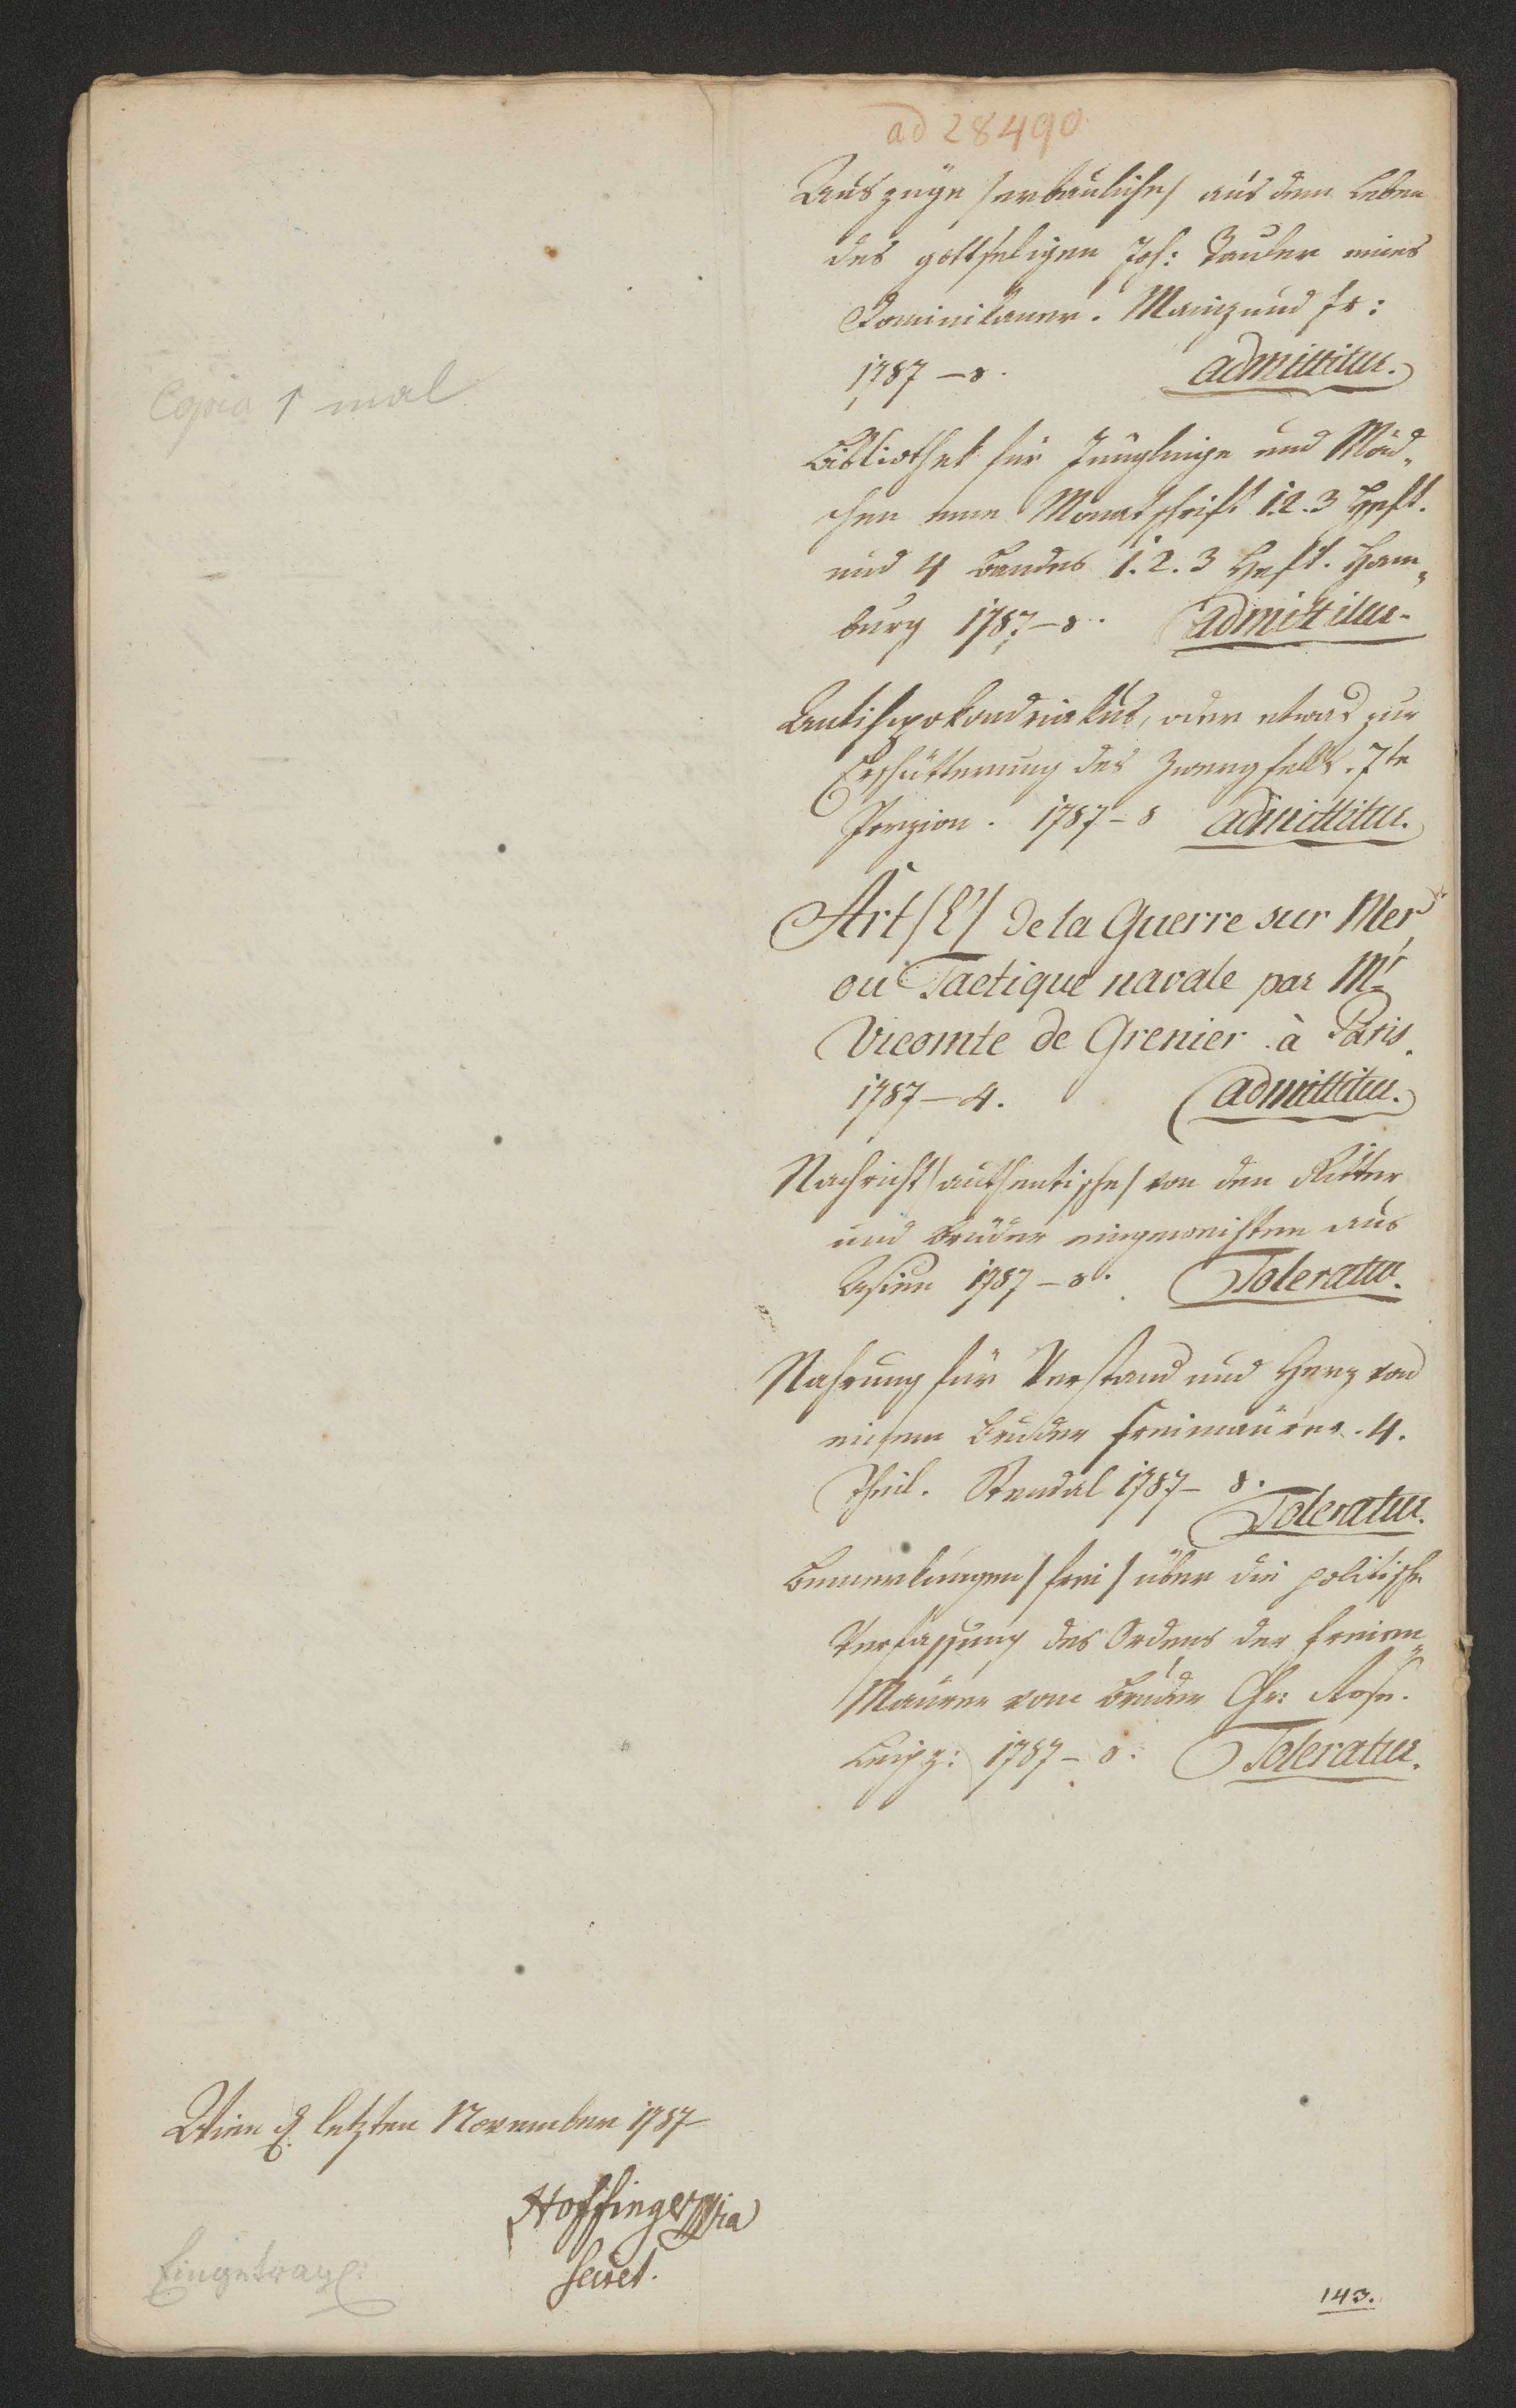 ad 28490
Auszüge /erbauliche/ aus dem Leben
des gottseligen Joh: Tauler eines
Dominikaner. Mainz und Fr:
1787 – 8. admittitur.
Copia 1 mal
Bibliothek für Jünglinge und Mäd„
chen eine Monatschrift 1.2.3 Heft.
und 4 Bandes 1.2.3 Heft. Ham„
burg 1787 – 8. admittitur.
Antihypokondriakus, oder etwas zur
Erschütterung des Zwergfells. 7te
Porzion. 1787 – 8 admittitur.
Art /L'/ de la Guerre sur Mer
ou Tactique navale par Mr.
Vicomte de Grenier à Paris.
1787 – 4. admittitur.
Nachricht /authentische/ von den Ritter
und Brüder eingeweihten aus
Asien 1787 – 8. Toleratur.
Nahrung für Verstand und Herz von
einem Bruder Freimaurer. 4.
Theil. Stendal 1787 – 8.
Toleratur.
Bemerkungen /frei/ über die politische
Verfassung des Ordens der Freien„
Maurer vom Bruder Chr: Rose.
Leipz: 1787 – 8. Toleratur.
Wien d. letzten November 1787
Hoffinger mpria
Secret.
Eingetrag:
143.